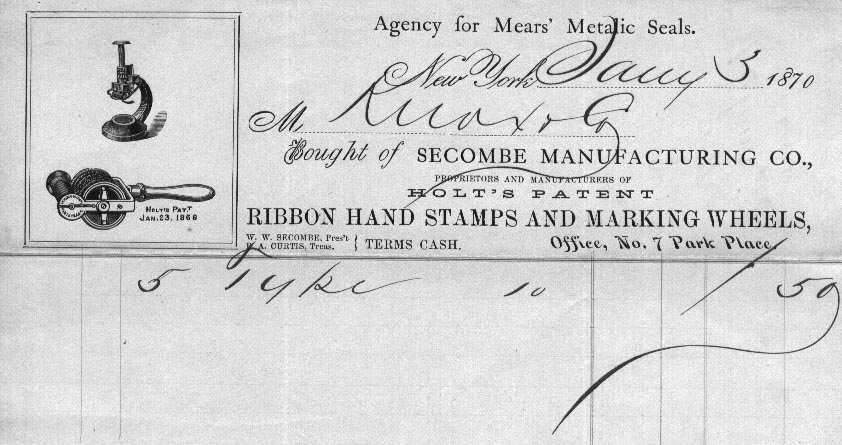 Agency for Mears' Metalic Seals.
New York Jany 3 1870
M Knox & Co
Bought of SECOMBE MANUFACTURING CO.,
PROPRIETORS AND MANUFACTURERS OF
HOLT'S PATENT
RIBBON HAND STAMPS AND MARKING WHEELS,
W. W. SECOMBE, Pres't
E. A. CURTIS, Treas. { TERMS CASH.
Office, No. 7 Park Place
HOLT'S PAT.
JAN. 23, 1866
5 Type 10 1 50